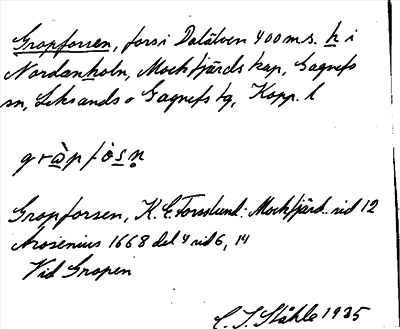 Gropforsen, fors i Dalälven 400 m s. h i
Nordanholn, Mockfjärds kap, Gagnefs
sn, Leksands o Gagnefs tg, Kopp. l
Gropforsen, K. E. Forsslund: Mockfjärd. sid 12
Arosenius 1668 del 4 sid 6, 14
Vid Gropen
C. I. Ståhle 1935